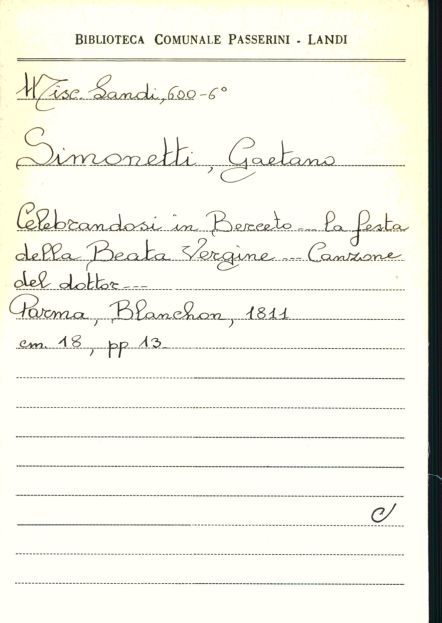 BIBLIOTECA COMUNALE PASSERINI - LANDI
Misc. Landi, 600-6°
Simonetti, Gaetano
Celebrandosi in Berceto ... la festa
della Beata Vergine ... Canzone
del dottor ...
Parma, Blanchon, 1811
cm. 18, pp 13.